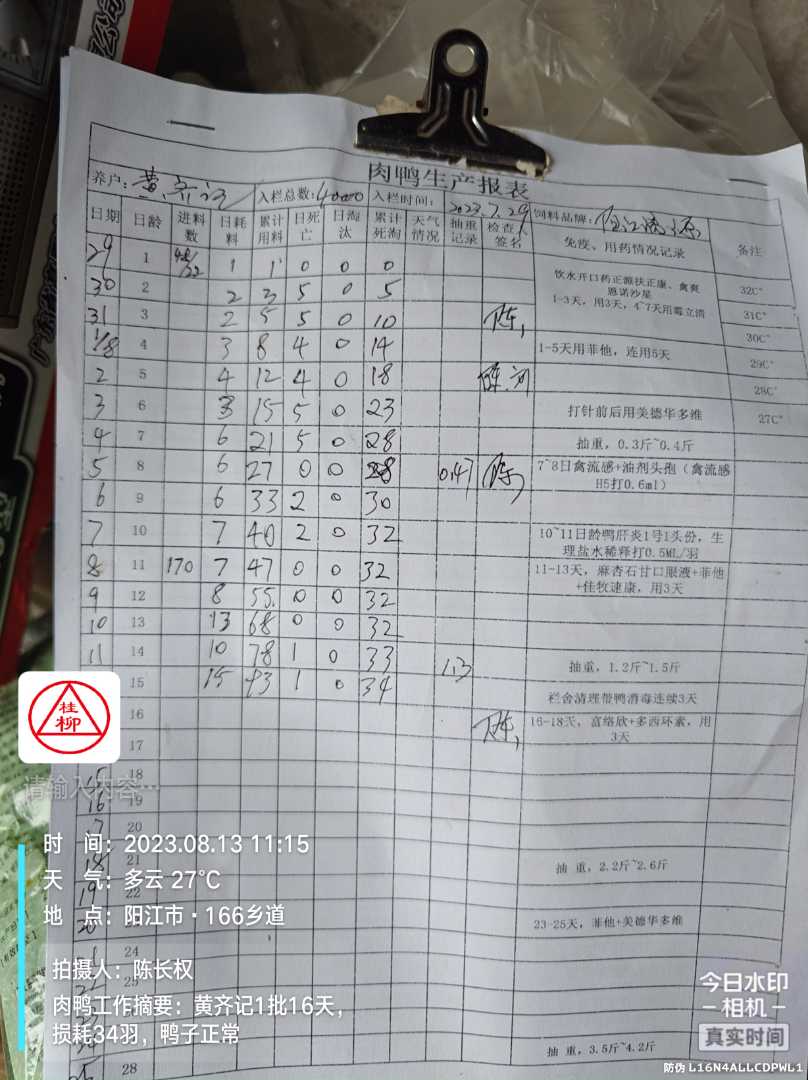 肉鸭生产报表
养户: 黄齐记 入栏总数: 4000 入栏时间: 2023.7.29 饲料品牌:
日期 日龄 进料数 日耗料 累计用料 日死亡 日淘汰 累计死淘 天气情况 抽重记录 检查人签名 免疫、用药情况记录 备注
29 1 1 1 0 0 0 饮水开口药正源扶正康、禽爽
恩诺沙星
30 2 2 3 5 0 5 1-3天，用3天，4~7天用霉立清 32C°
31 3 2 5 5 0 10 陈 31C°
30C°
1/8 4 3 8 4 0 14 1-5天用菲他，连用5天 29C°
2 5 4 12 4 0 18 28C°
3 6 3 15 5 0 23 打针前后用美德华多维 27C°
4 7 6 21 5 0 28 抽重，0.3斤~0.4斤
5 8 6 27 0 0 28 0.47 陈 7~8日禽流感+油剂头孢（禽流感
H5打0.6ml）
6 9 6 33 2 0 30
7 10 7 40 2 0 32 10~11日龄鸭肝炎1号1头份，生
理盐水稀释打0.5ML/羽
8 11 170 7 47 0 0 32 11-13天，麻杏石甘口服液+菲他
+佳牧速康，用3天
9 12 8 55 0 0 32
10 13 13 68 0 0 32
11 14 10 78 1 0 33 1.3 抽重，1.2斤~1.5斤
15 15 93 1 0 34 栏舍清理带鸭消毒连续3天
16 陈 16-18天，富络欣+多西环素，用
3天
17
15 18
16 19
20
18 21 抽 重，2.2斤~2.6斤
19 22
20 23-25天，菲他+美德华多维
24
25
抽 重，3.5斤~4.2斤
28
桂柳
请输入内容…
时 间: 2023.08.13 11:15
天 气: 多云 27℃
地 点: 阳江市·166乡道
拍摄人: 陈长权
肉鸭工作摘要: 黄齐记1批16天，
损耗34羽，鸭子正常
今日水印
-相机-
真实时间
防伪 L16N4ALLCDPWL1